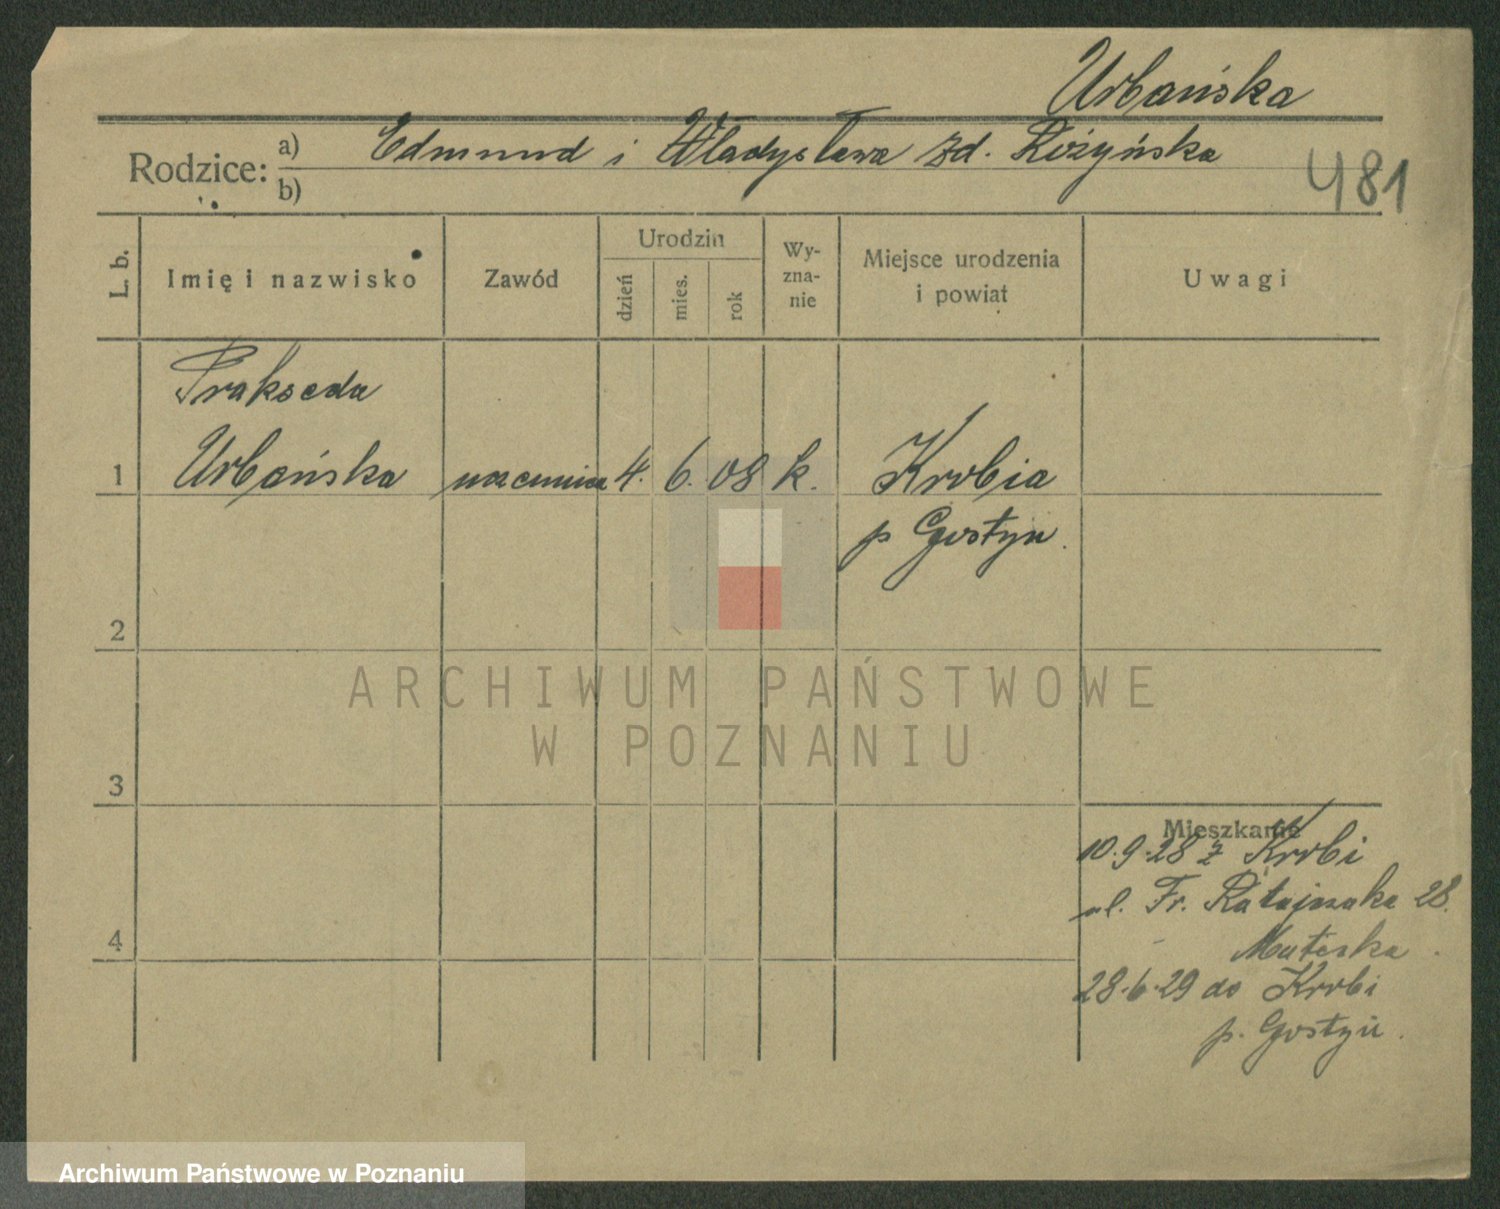 Urbańska
Rodzice: a) Edmund i Władysława zd. Różyńska
b)
481
L. b.
Imię i nazwisko
Zawód
Urodzin
dzień
mies.
rok
Wy-
zna-
nie
Miejsce urodzenia
i powiat
Uwagi
Prakseda
1 Urbańska uczennica 4. 6. 08 k. Krobia
p Gostyn.
2
ARCHIWUM PAŃSTWOWE
W POZNANIU
3
Mieszkanie
10.9.28 z Krobi
ul. Fr. Ratajczaka 28.
4
28.6.29 do Krobi
p. Gostyń.
Archiwum Państwowe w Poznaniu